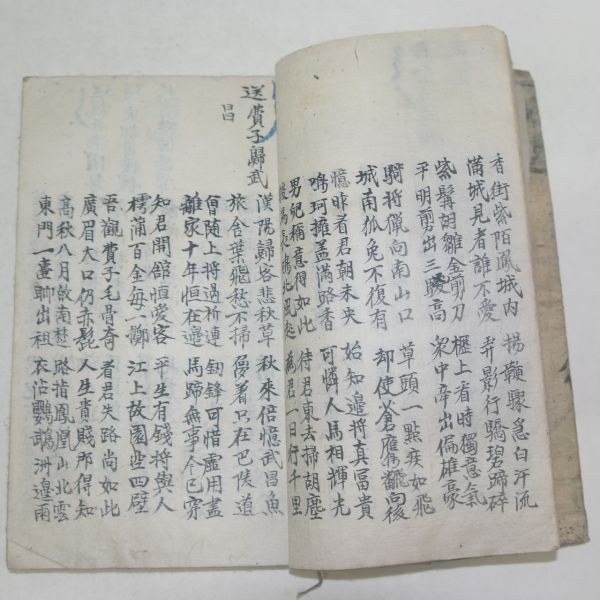 香街紫陌鳳城內 揚鞭驟急白汗流
滿城見者誰不愛 弄影行驕碧蹄碎
紫髯胡雛金剪刀 櫪上看時獨意氣
平明剪出三騣高 眾中牽出偏雄豪
騎將獵向南山口 草頭一點疾如飛
城南狐兔不復有 却使蒼鷹翻向後
憶昨看君朝未央 始知邊將真富貴
鳴珂擁蓋滿路香 可憐人馬相輝光
男兒稱意得如此 待君東去掃胡塵
駿馬長鳴北風起 為君一日行千里
送費子歸武
昌
漢陽歸客悲秋草 秋來倍憶武昌魚
旅舍葉飛愁不掃 夢著只在巴陵道
曾隨上將過祈連 劍鋒可惜虛用盡
離家十年恒在邊 馬蹄無事今已穿
知君開館恒愛客 平生有錢將與人
樗蒲百金每一擲 江上故園空四壁
吾觀費子毛骨奇 看君失路尚如此
廣眉大口仍赤髭 人生貴賤那得知
高秋八月故南楚 路指鳳凰山北雲
東門一壺聊出祖 衣沾鸚鵡洲邊雨